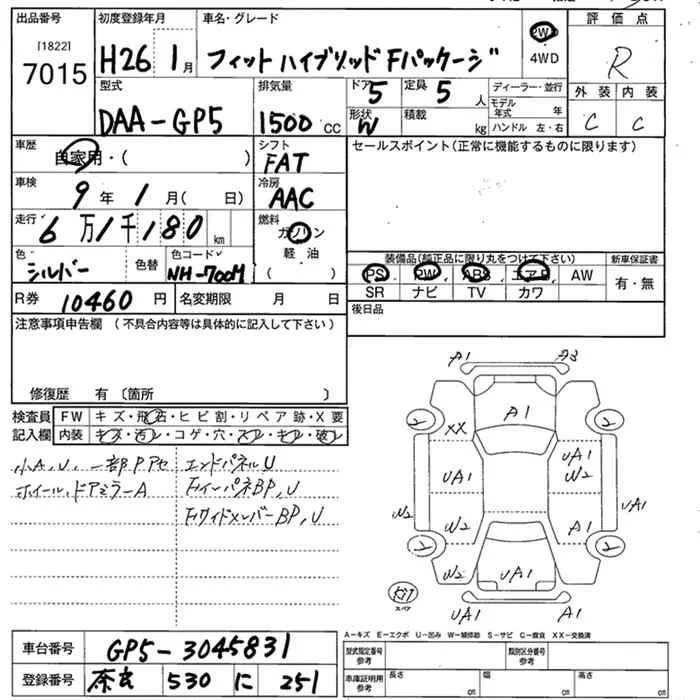 出品番号 初度登録年月 車名・グレード 評価点
[1822]
7015 H26 1月 フィット ハイブリッド Fパッケージ 2WD 4WD R
型式 排気量 ドア 5 定員 5人 ディーラー・並行 外装 内装
DAA-GP5 1500cc 形状 W 積載 kg モデル年式 年 C C
ハンドル 左・右
車歴 自家用・( ) シフト FAT セールスポイント(正常に機能するものに限ります)
車検 9年1月( 日) 冷房 AAC
走行 6万1千180km 燃料 ガソリン
色 色替 色コード 軽油 装備品(純正品に限り丸をつけて下さい) 新車保証書
シルバー NH-700M ( ) PS PW ABS エアB AW 有・無
R券 10460円 名変期限 月 日 SR ナビ TV カワ
後日品
注意事項申告欄(不具合内容等は具体的に記入して下さい)
修復歴 有〔箇所 〕
検査員 FW キズ・飛石・ヒビ割・リペア跡・X要
記入欄 内装 キズ・汚レ・コゲ・穴・スレ・キレ・破レ
小A,U,一部Pアセ エンドパネルU
ホイール,ドアミラーA
A1 A3
A1
2 XX 2
UA1 UA1 W2
W2 W2 A1 UA1
2 2
W2 UA1
スペア UA1 A1
A-キズ E-エクボ U-凹み W-補修跡 S-サビ C-腐食 XX-交換済
車台番号 GP5-3045831
型式指定番号 参考 類別区分番号 参考
登録番号 奈良 530 に 251
車庫証明用 参考 長さ cm 幅 cm 高さ cm